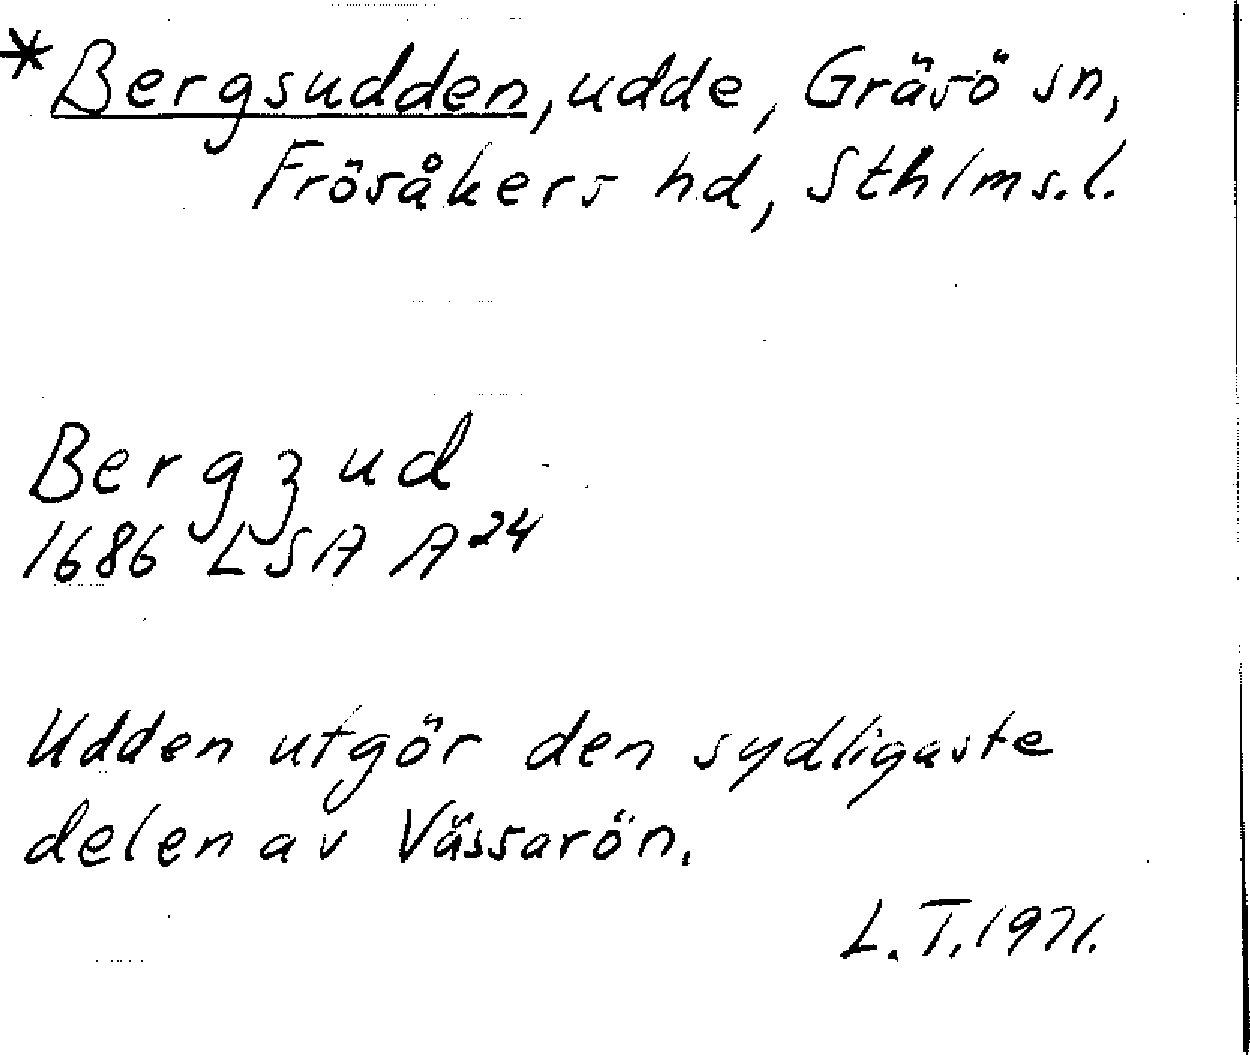 *Bergsudden, udde, Gräsö sn,
Frösåkers hd, Sthlms.l.
Bergzud
1686 LSA A²⁴
Udden utgör den sydligaste
delen av Vässarön.
L.T. 1971.